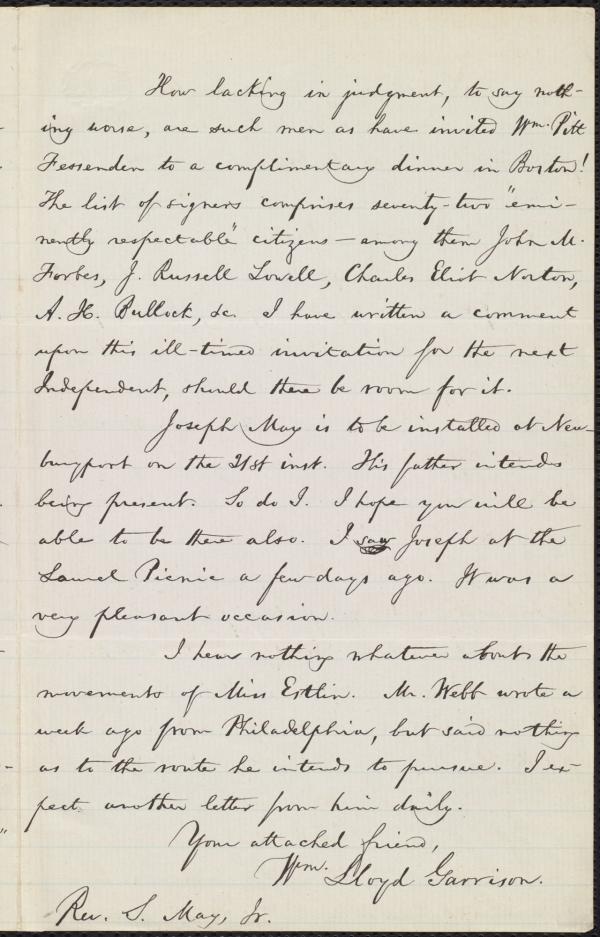 How lacking in judgment, to say noth-
ing worse, are such men as have invited Wm. Pitt
Fessenden to a complimentary dinner in Boston!
The list of signers comprises seventy-two "emi-
nently respectable" citizens — among them John M.
Forbes, J. Russell Lowell, Charles Eliot Norton,
A. H. Bullock, &c. I have written a comment
upon this ill-timed invitation for the next
Independent, should there be room for it.
Joseph May is to be installed at New-
buryport on the 21st inst. His father intends
being present. So do I. I hope you will be
able to be there also. I saw Joseph at the
Laurel Picnic a few days ago. It was a
very pleasant occasion.
I hear nothing whatever about the
movements of Miss Estlin. Mr. Webb wrote a
week ago from Philadelphia, but said nothing
as to the route he intends to pursue. I ex-
pect another letter from him daily.
Your attached friend,
Wm. Lloyd Garrison.
Rev. S. May, Jr.